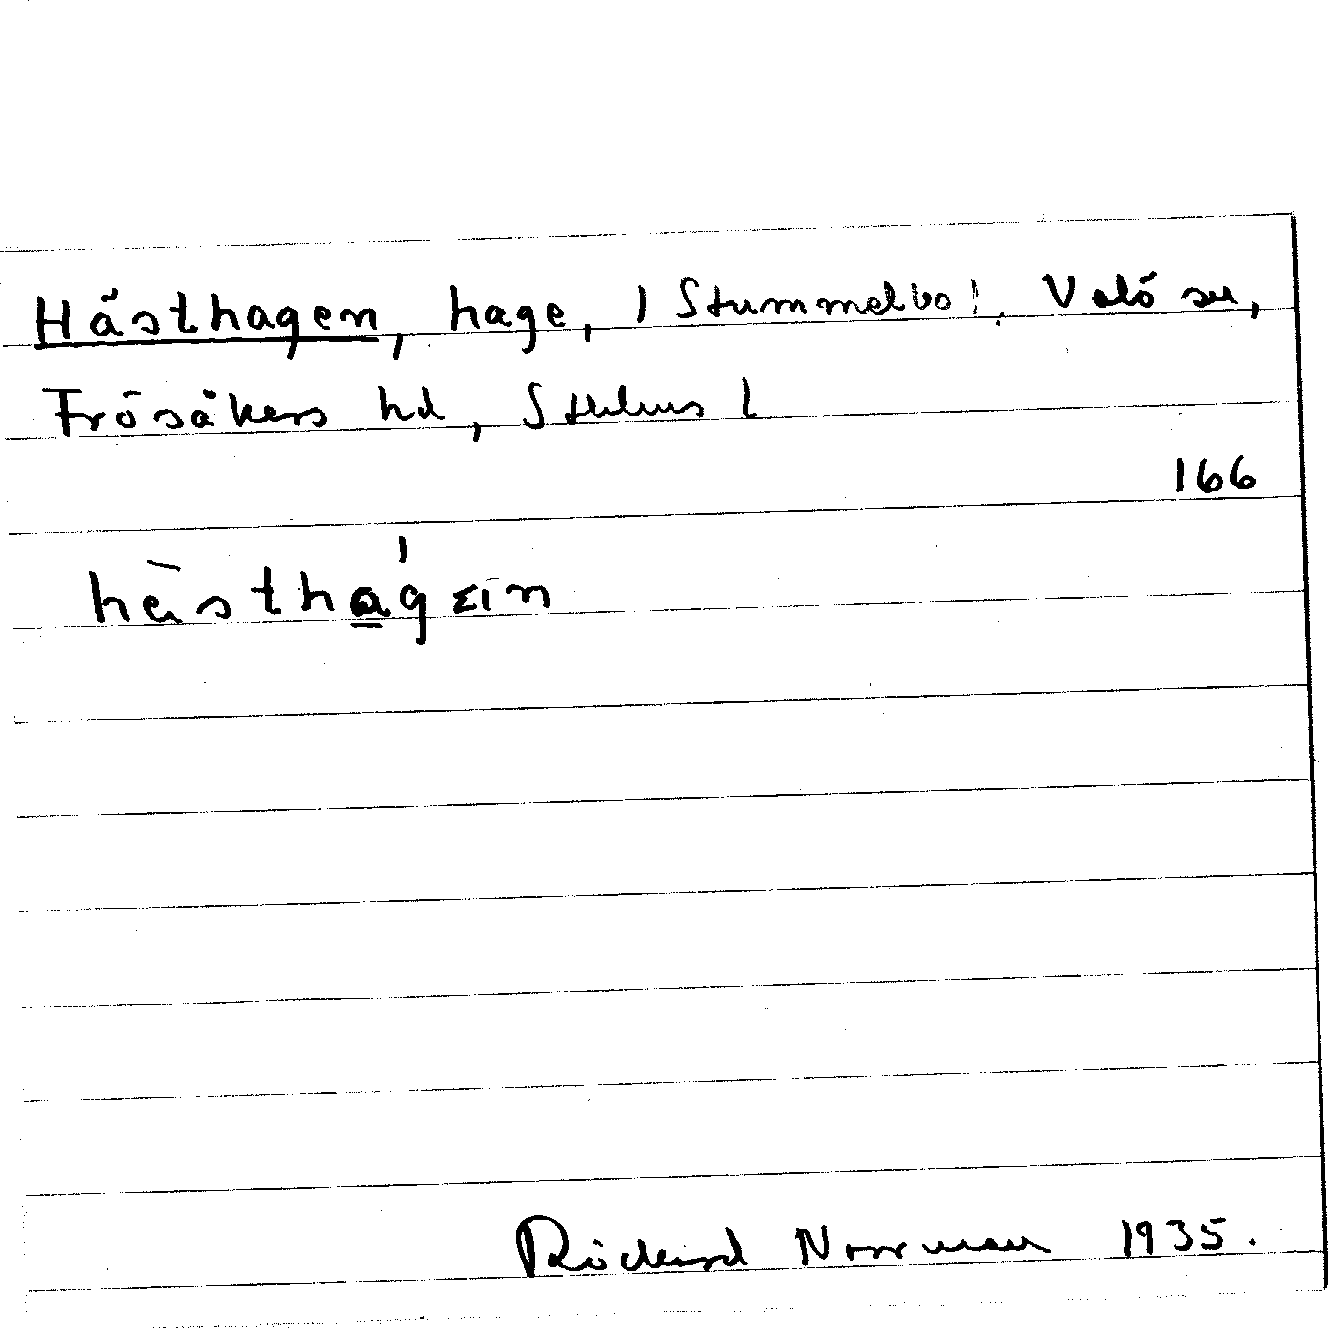 Hästhagen, hage, / Stummelbo /. Valö sn,
Frösåkers hd, Sthlms l
166
hästhagen
Rickard Norrman 1935.